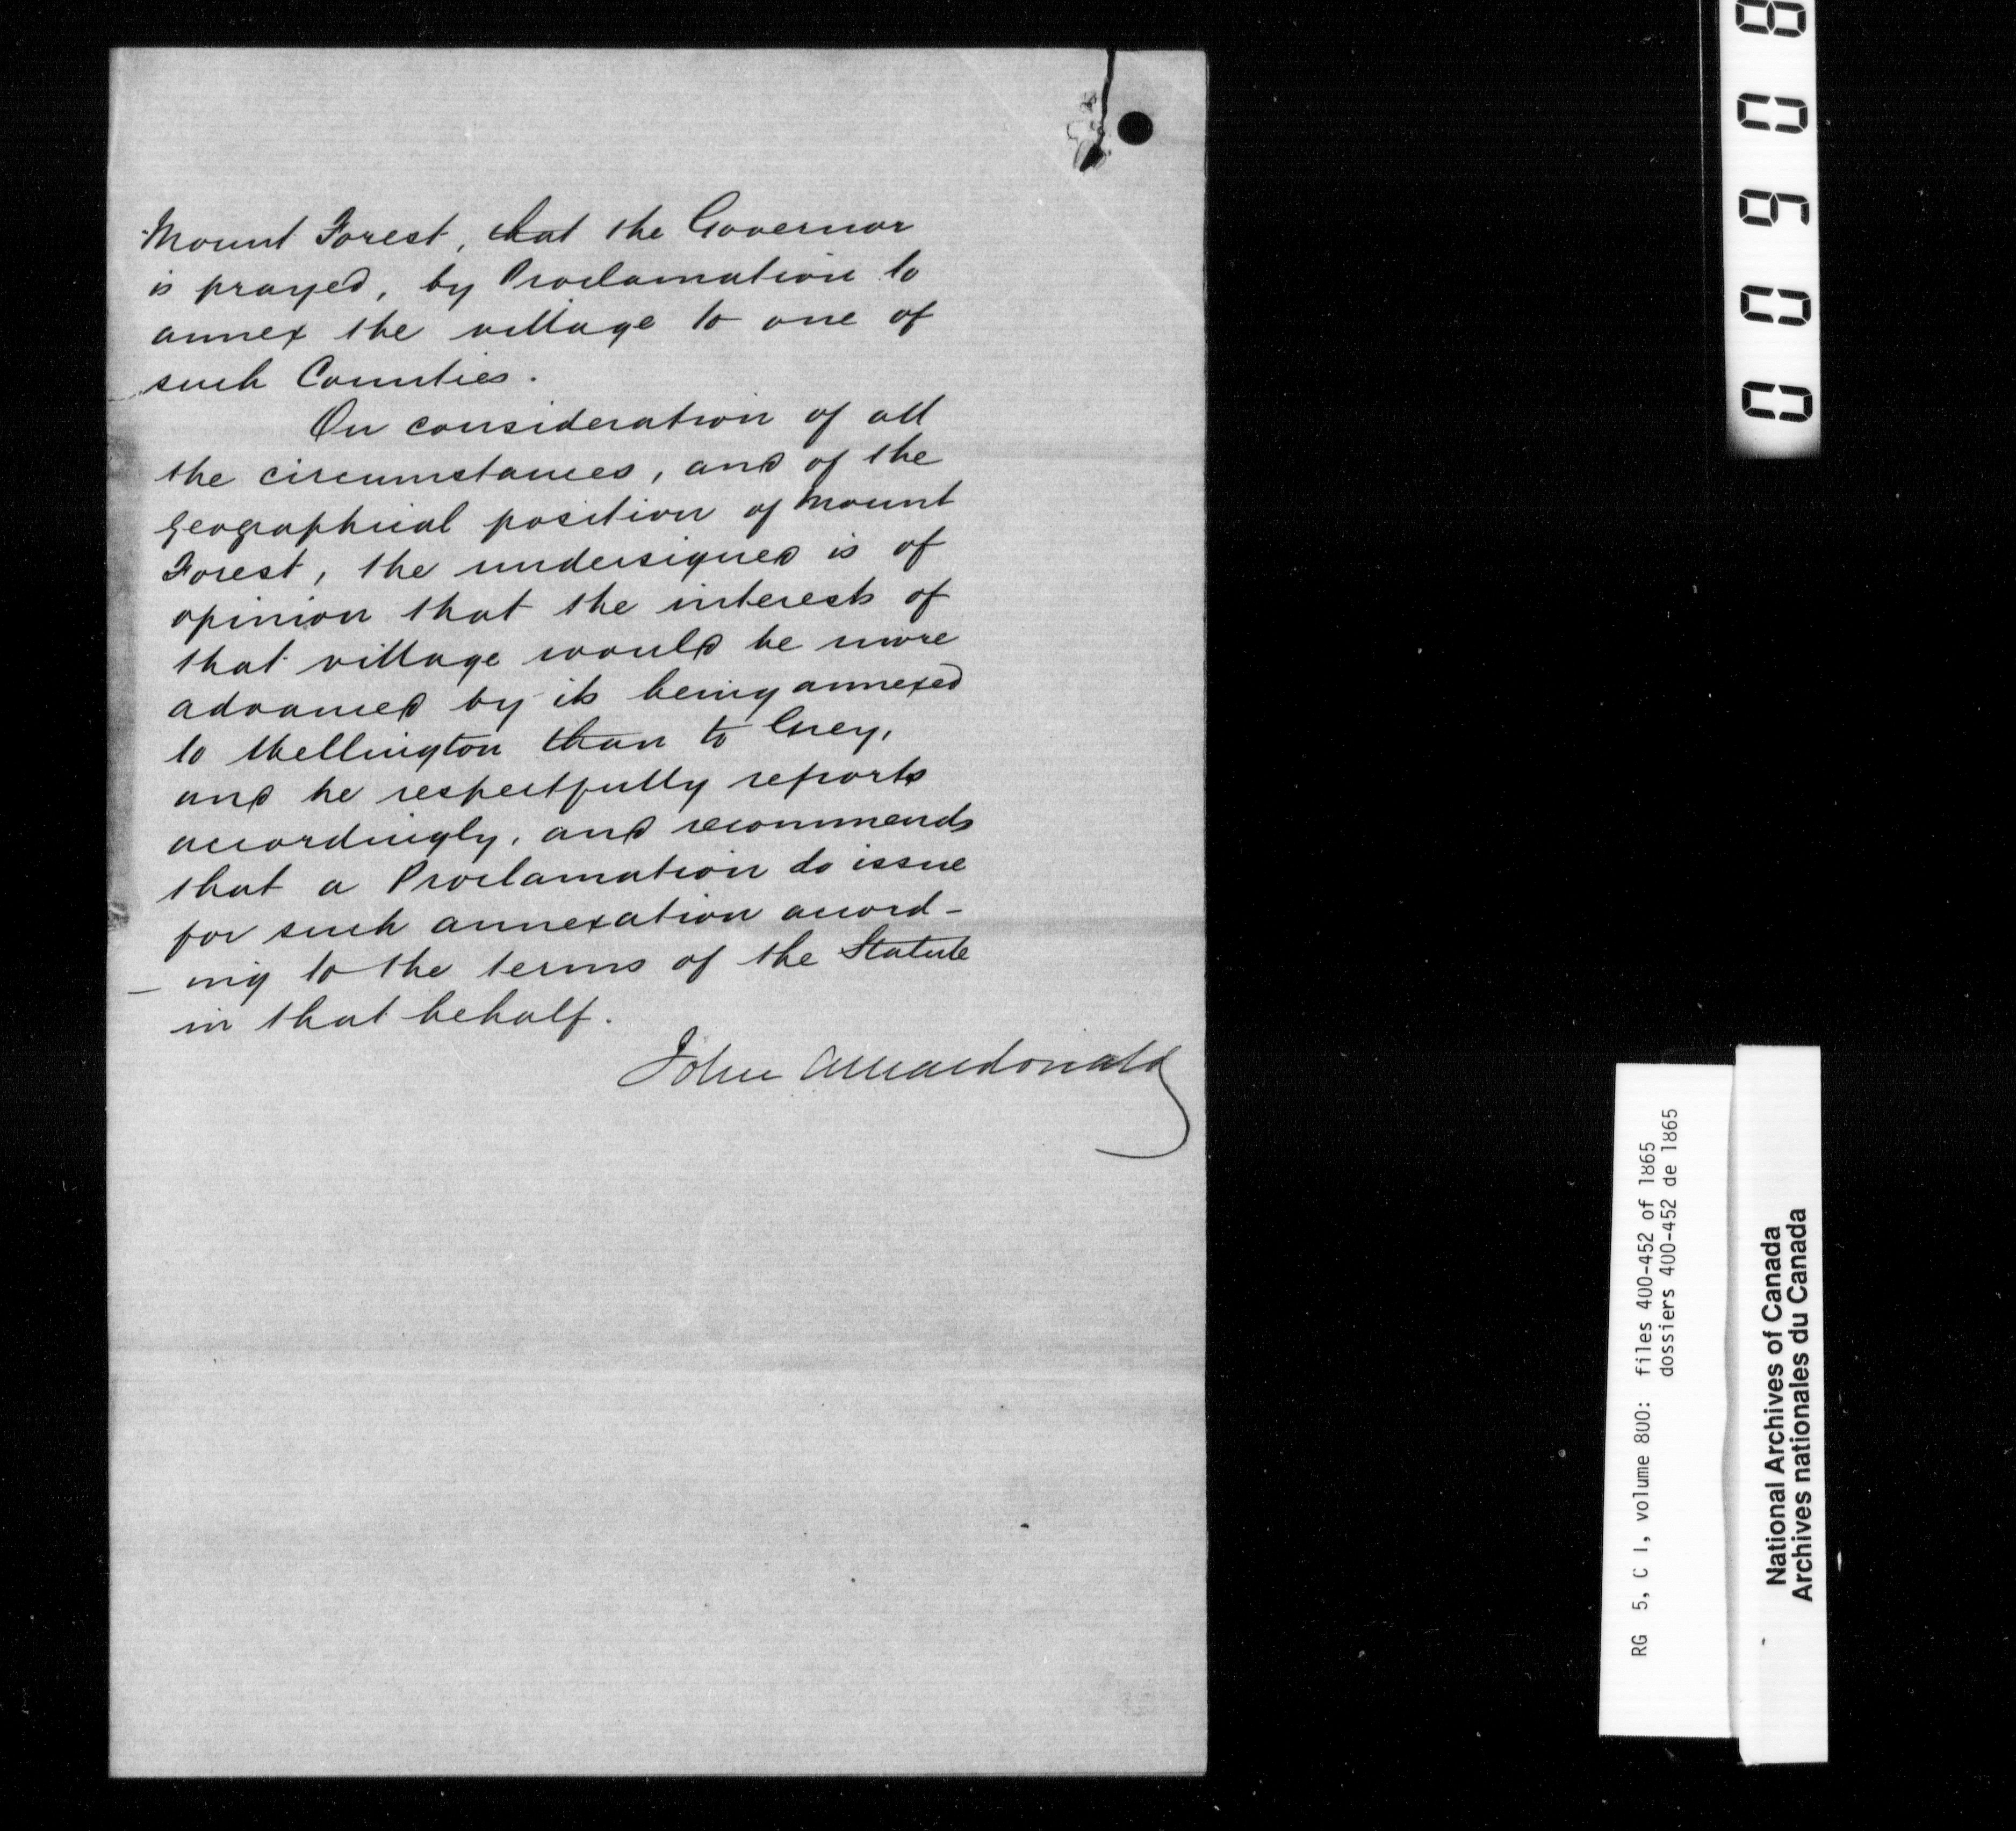 Mount Forest, that the Governor
is prayed, by Proclamation to
annex the village to one of
such Counties.
On consideration of all
the circumstances, and of the
geographical position of Mount
Forest, the undersigned is of
opinion that the interests of
that village would be more
advanced by its being annexed
to Wellington than to Grey,
and he respectfully reports
accordingly, and recommends
that a Proclamation do issue
for such annexation accord-
- ing to the terms of the Statute
in that behalf.
John A Macdonald
00908
RG 5, C 1, volume 800: files 400-452 of 1865
dossiers 400-452 de 1865
National Archives of Canada
Archives nationales du Canada